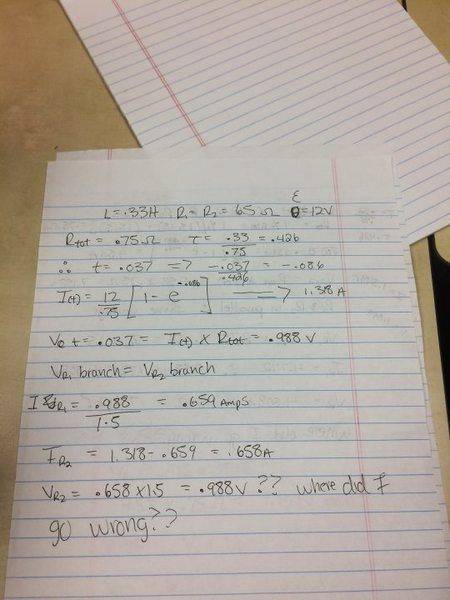 ε
L = .33H R₁ = R₂ = 65 Ω θ = 12V
Rtot = .75 Ω τ = .33/.75 = .426
∴ t = .037 => -.037/.426 = -.086
I(t) = 12/.75 [1 - e^-.086] => 1.318 A
V@ t = .037 = I(t) x Rtot = .988 V
VR₁ branch = VR₂ branch
I R₁ = .988/1.5 = .659 Amps
IR₂ = 1.318 - .659 = .658A
VR₂ = .658 x 1.5 = .988V ?? where did I
go wrong??